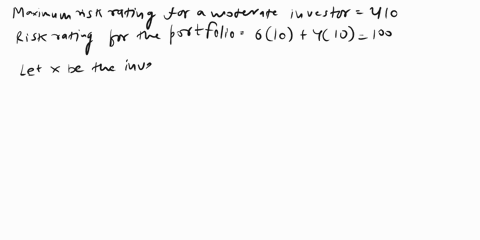 Maximum risk rating for a moderate investor = 410
Risk rating for the portfolio = 6(10) + 4(10) = 100
Let x be the inv